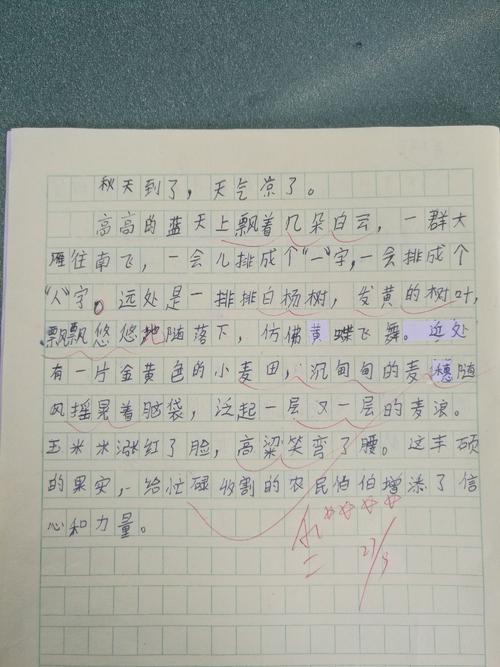 秋天到了，天气凉了。
高高的蓝天上飘着几朵白云，一群大
雁往南飞，一会儿排成个“一”字，一会排成个
“人”字。远处是一排排白杨树，发黄的树叶，
飘飘悠悠地随落下，仿佛黄蝶飞舞。近处
有一片金黄色的小麦田，沉甸甸的麦穗随
风摇晃着脑袋，泛起一层又一层的麦浪。
玉米米涨红了脸，高粱笑弯了腰。这丰硕
的果实，给忙碌收割的农民伯伯增添了信
心和力量。
27/9